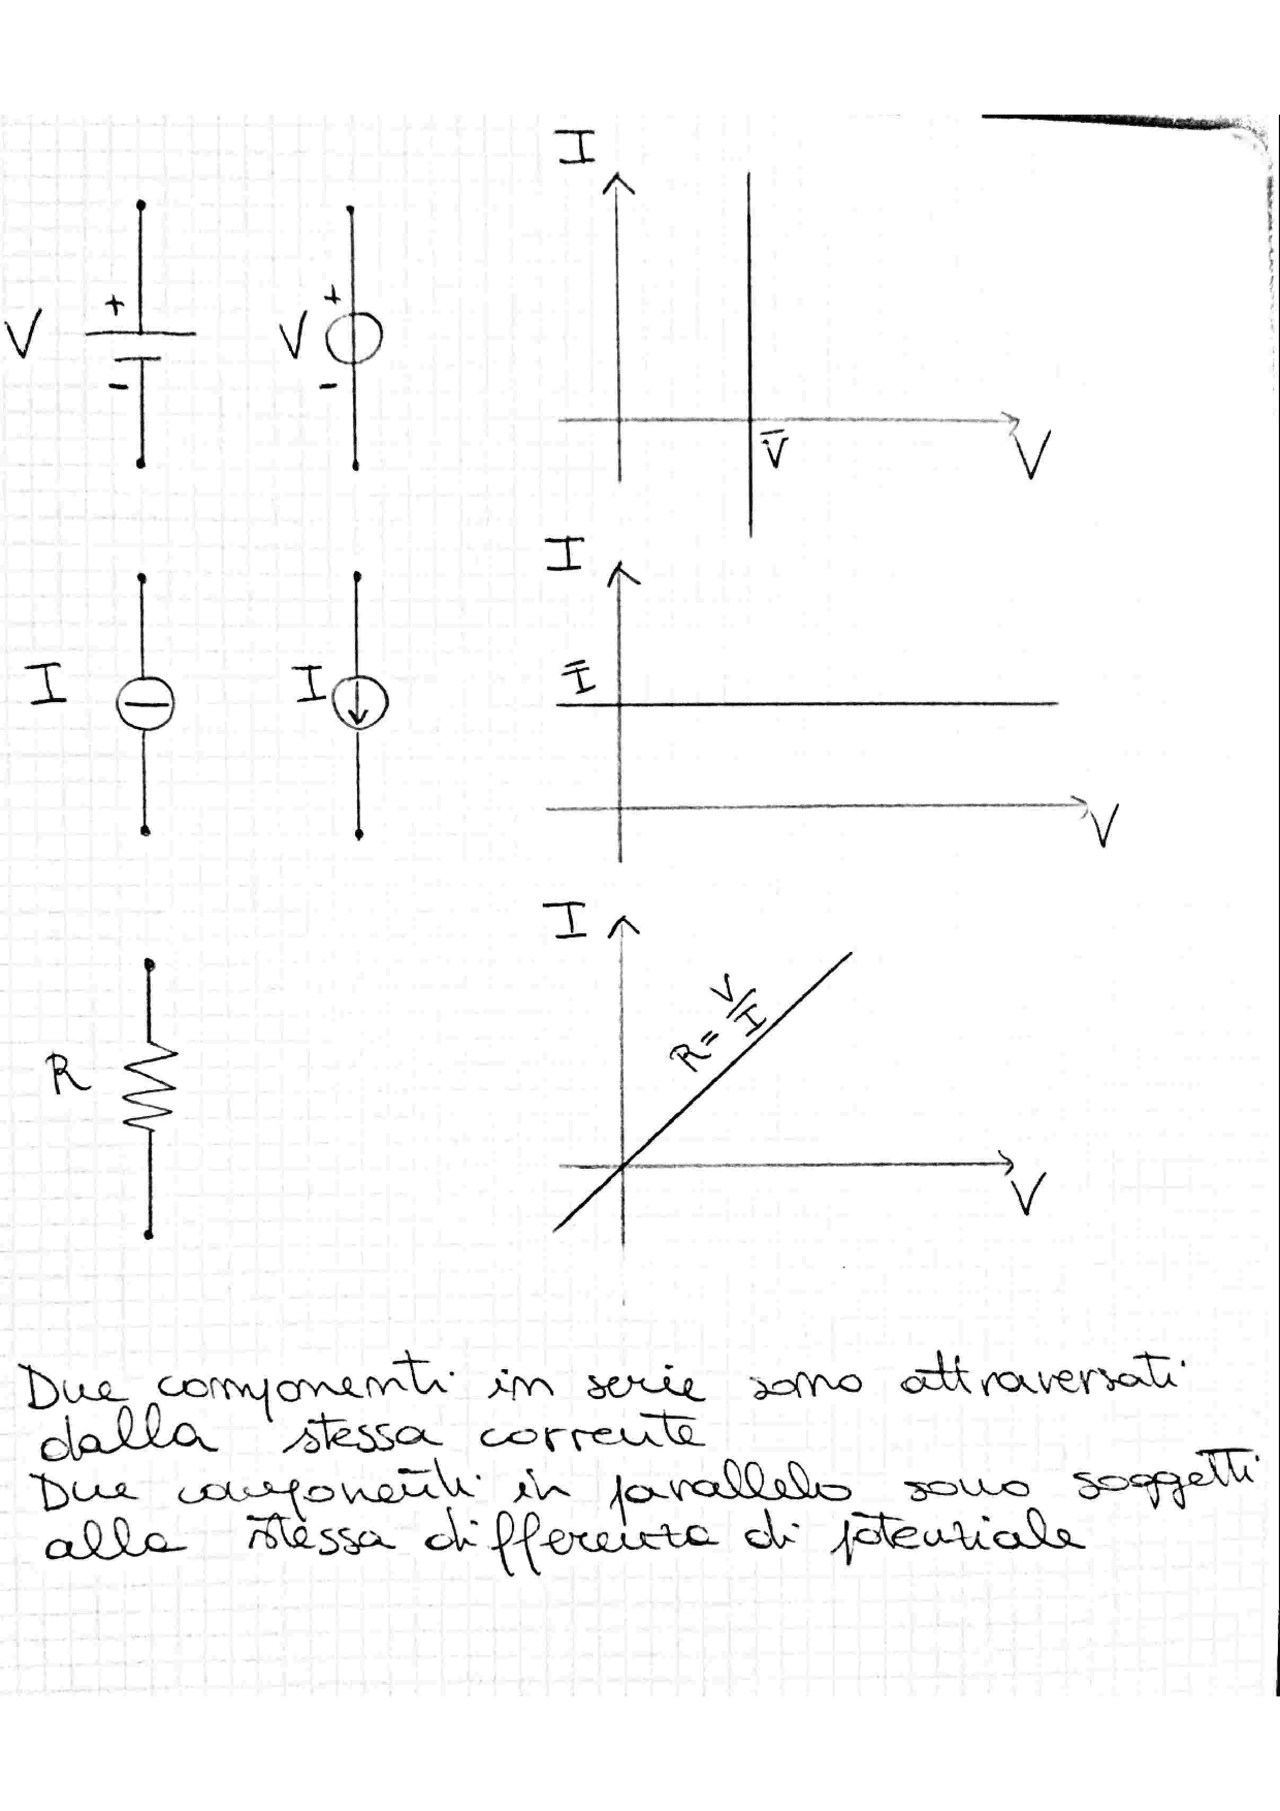 I
+
V
-
+
V
-
V̄
V
I
I
I
Ī
V
I
R
R = V/I
V
Due componenti in serie sono attraversati
dalla stessa corrente
Due componenti in parallelo sono soggetti
alla stessa differenza di potenziale